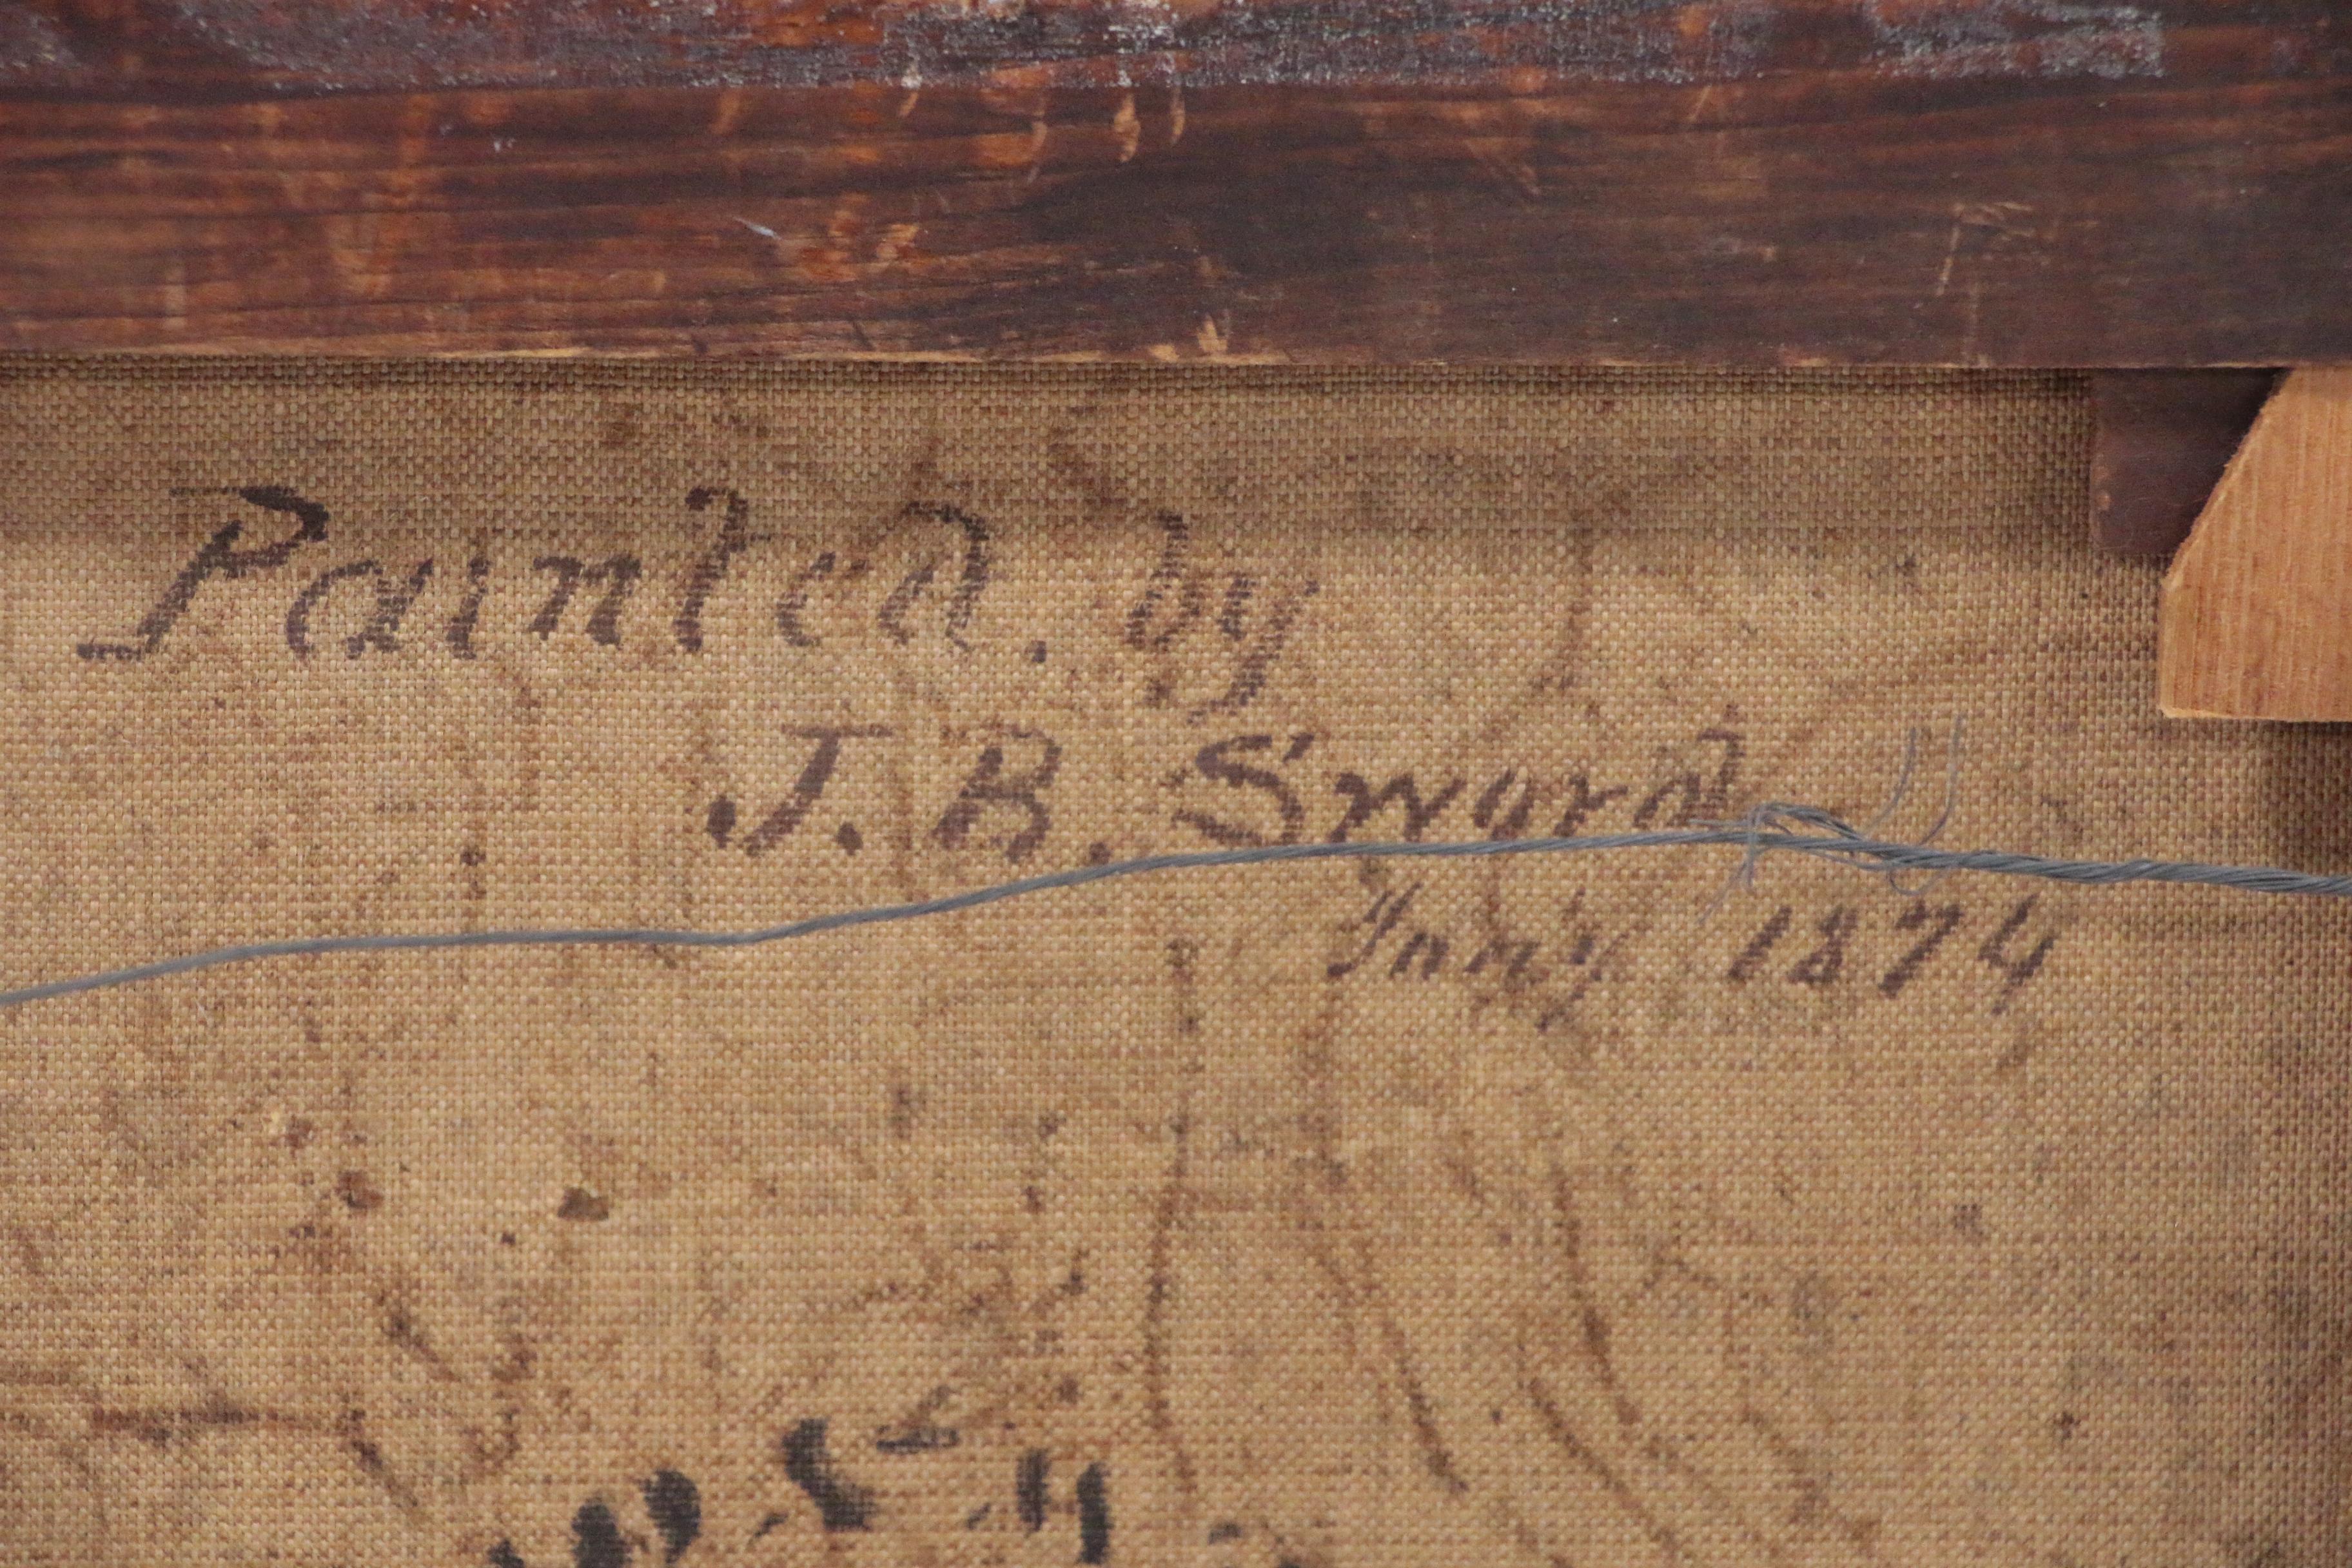 Painted. by
J. B. Sword
Jany 1874